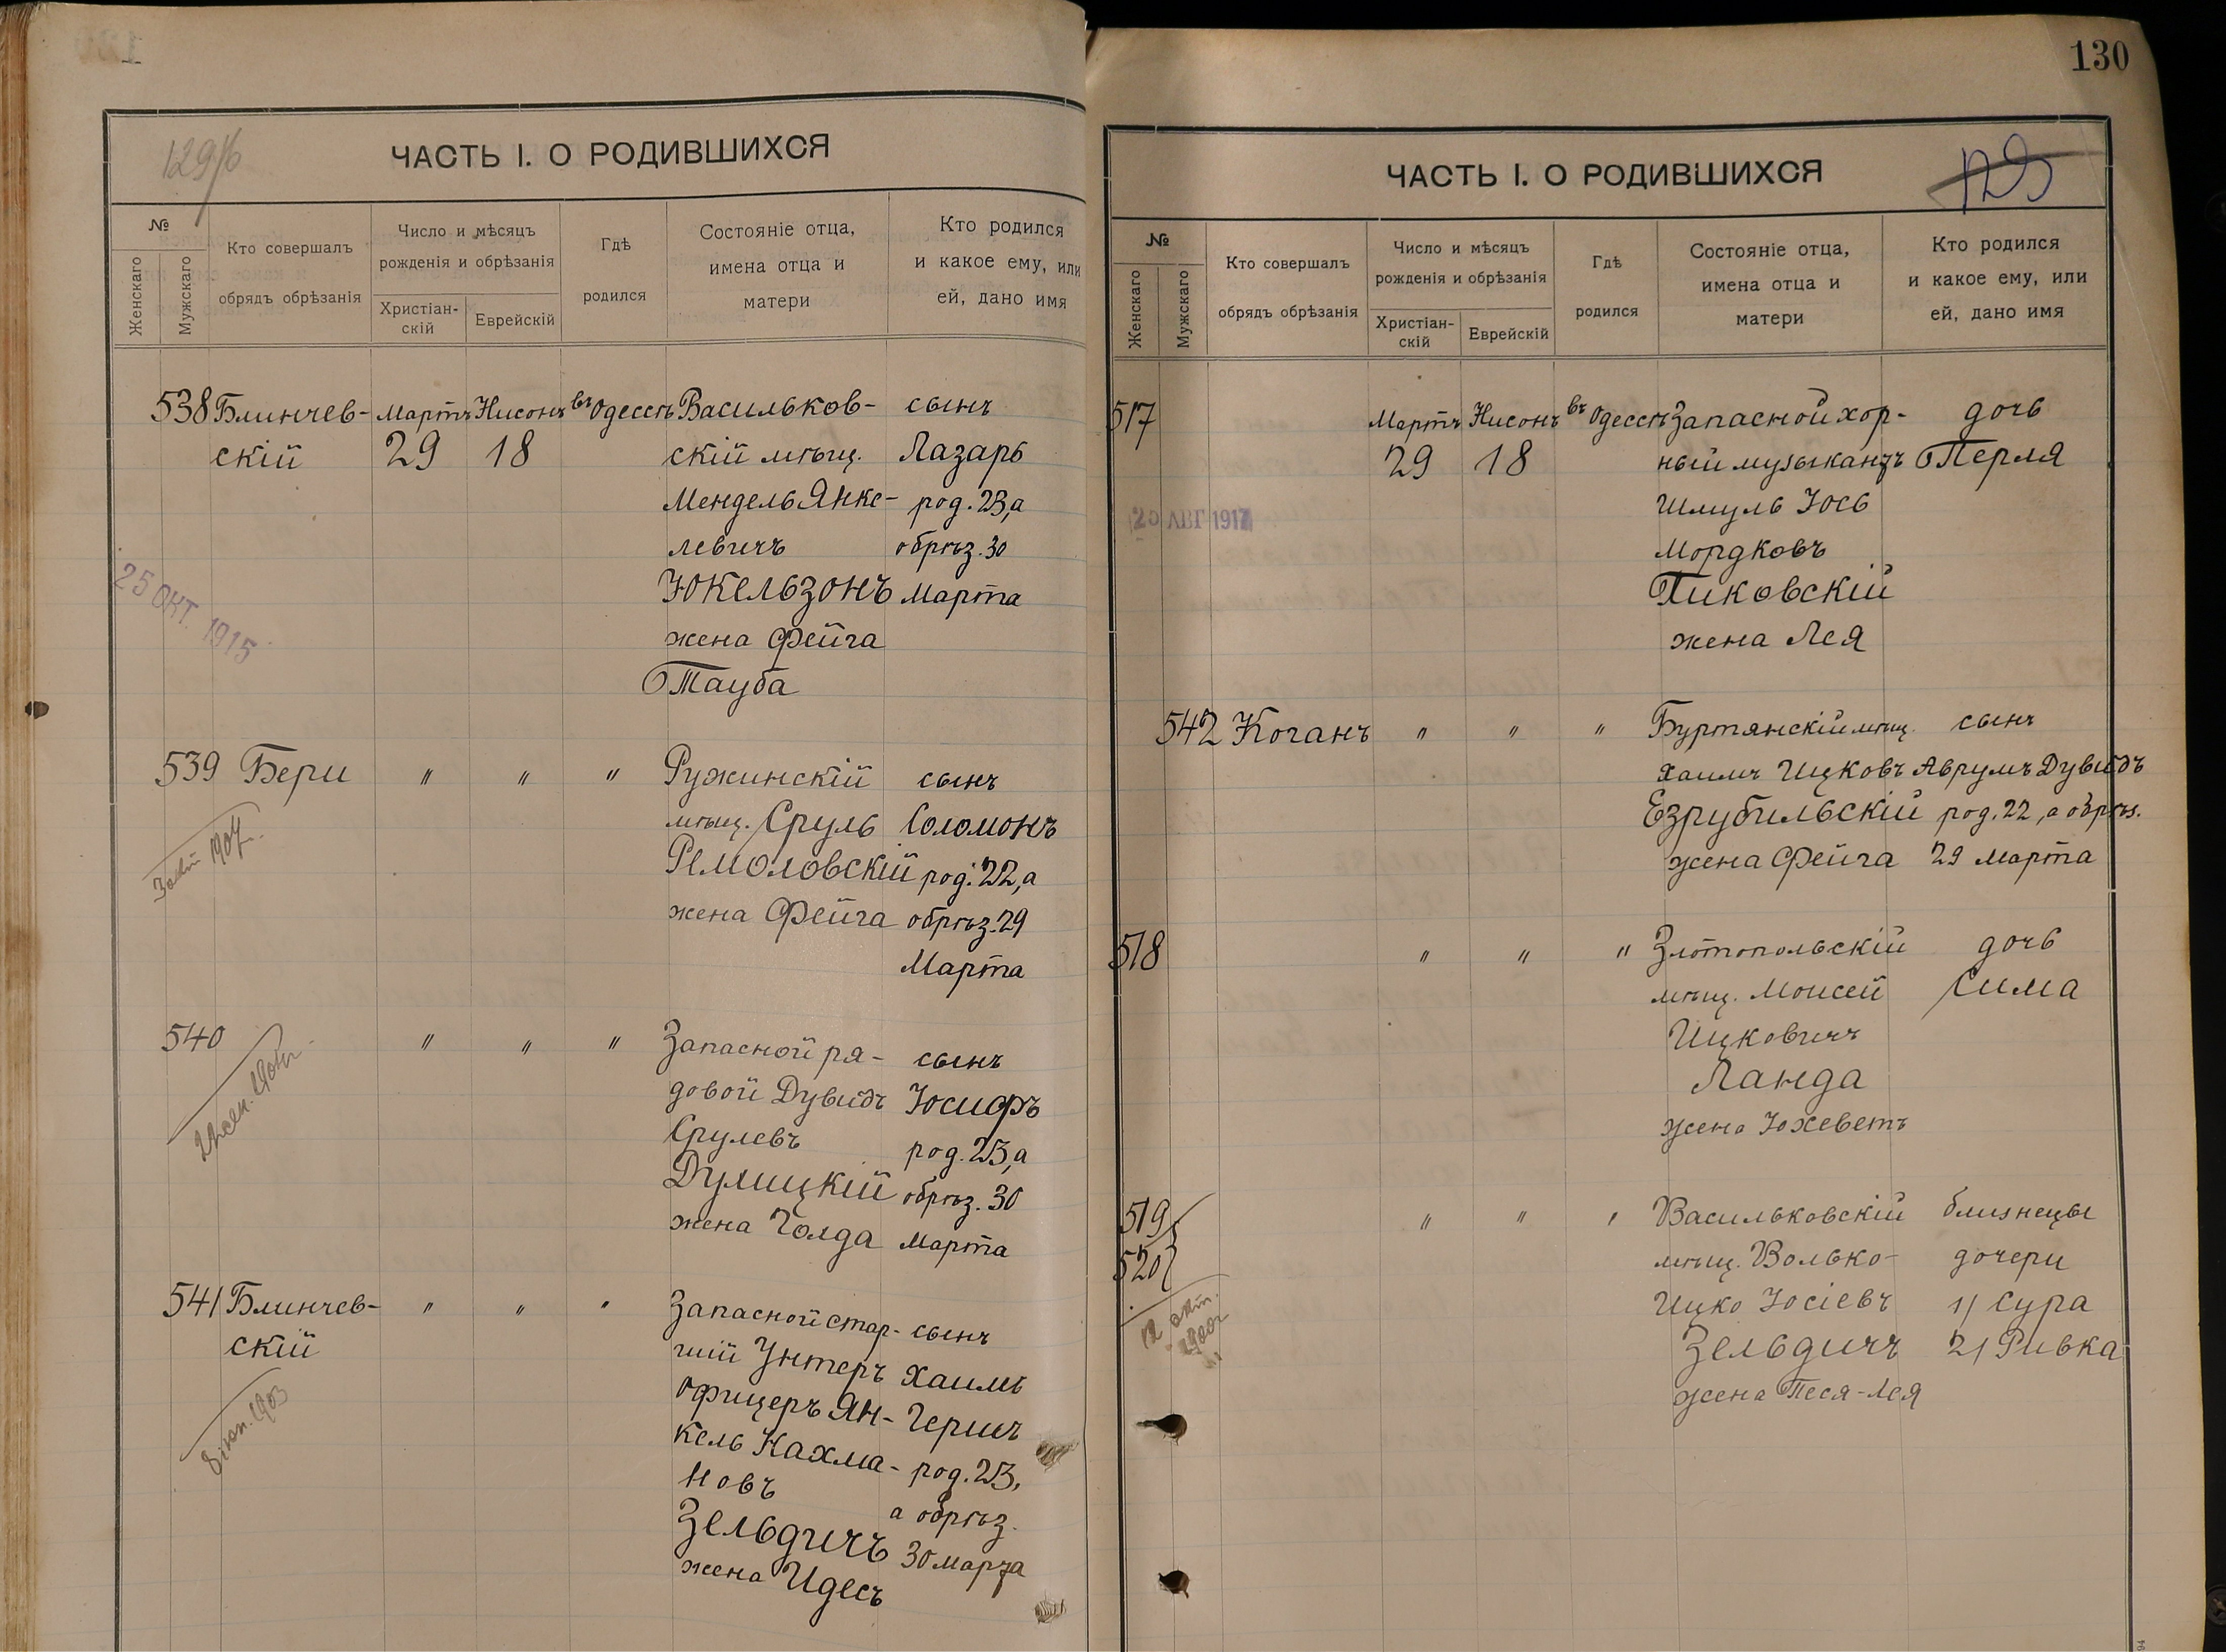 129/б
ЧАСТЬ I. О РОДИВШИХСЯ
№
Женскаго
Мужскаго
Кто совершалъ
обрядъ обрѣзанія
Число и мѣсяцъ
рожденія и обрѣзанія
Христіан-
скій
Еврейскій
Гдѣ
родился
Состояніе отца,
имена отца и
матери
Кто родился
и какое ему, или
ей, дано имя
538 Блинчев- Мартъ Нисонъ въ Одессѣ Васильков- сынъ
скій 29 18 скій мѣщ. Лазарь
Мендель Янке- род. 23, а
левичъ обрѣз. 30
Юкельзонъ Марта
жена Фейга
Тауба
25 ОКТ. 1915
539 Бери " " " Ружинскій сынъ
мѣщ. Сруль Соломонъ
Ремоловскій род. 22, а
жена Фейга обрѣз. 29
Марта
1904
540 " " " Запасной ря- сынъ
довой Дувидъ Іосифъ
Срулевъ род. 23, а
Дулицкій обрѣз. 30
жена Голда Марта
541 Блинчев- " " " Запасной стар- сынъ
скій шій Унтеръ Хаимъ
Офицеръ Ян- Гершъ
кель Нахма- род. 23,
новъ а обрѣз.
Зельдичъ 30 марта
жена Идесъ
1903
130
ЧАСТЬ I. О РОДИВШИХСЯ
129
№
Женскаго
Мужскаго
Кто совершалъ
обрядъ обрѣзанія
Число и мѣсяцъ
рожденія и обрѣзанія
Христіан-
скій
Еврейскій
Гдѣ
родился
Состояніе отца,
имена отца и
матери
Кто родился
и какое ему, или
ей, дано имя
517 Мартъ Нисонъ въ Одессѣ Запасной хор- дочь
29 18 ный музыкантъ Перля
Шмуль Іось
Мордковъ
Пиковскій
жена Лея
АВГ 1917
542 Коганъ " " " Буртянскій мѣщ. сынъ
Хаимъ Ицковъ Аврумъ Дувидъ
Езрубильскій род. 22, а обрѣз.
жена Фейга 29 Марта
518 " " " Златопольскій дочь
мѣщ. Моисей Сима
Ицковичъ
Ланда
жена Іохеветъ
519 " " " Васильковскій близнецы
520 мѣщ. Волько- дочери
Ицко Іосіевъ 1/ Сура
Зельдичъ 2/ Ривка
жена Песя-Лея